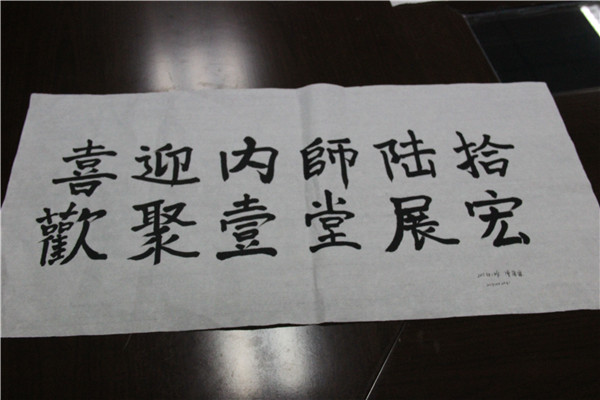 喜迎内師陆拾
歡聚壹堂展宏